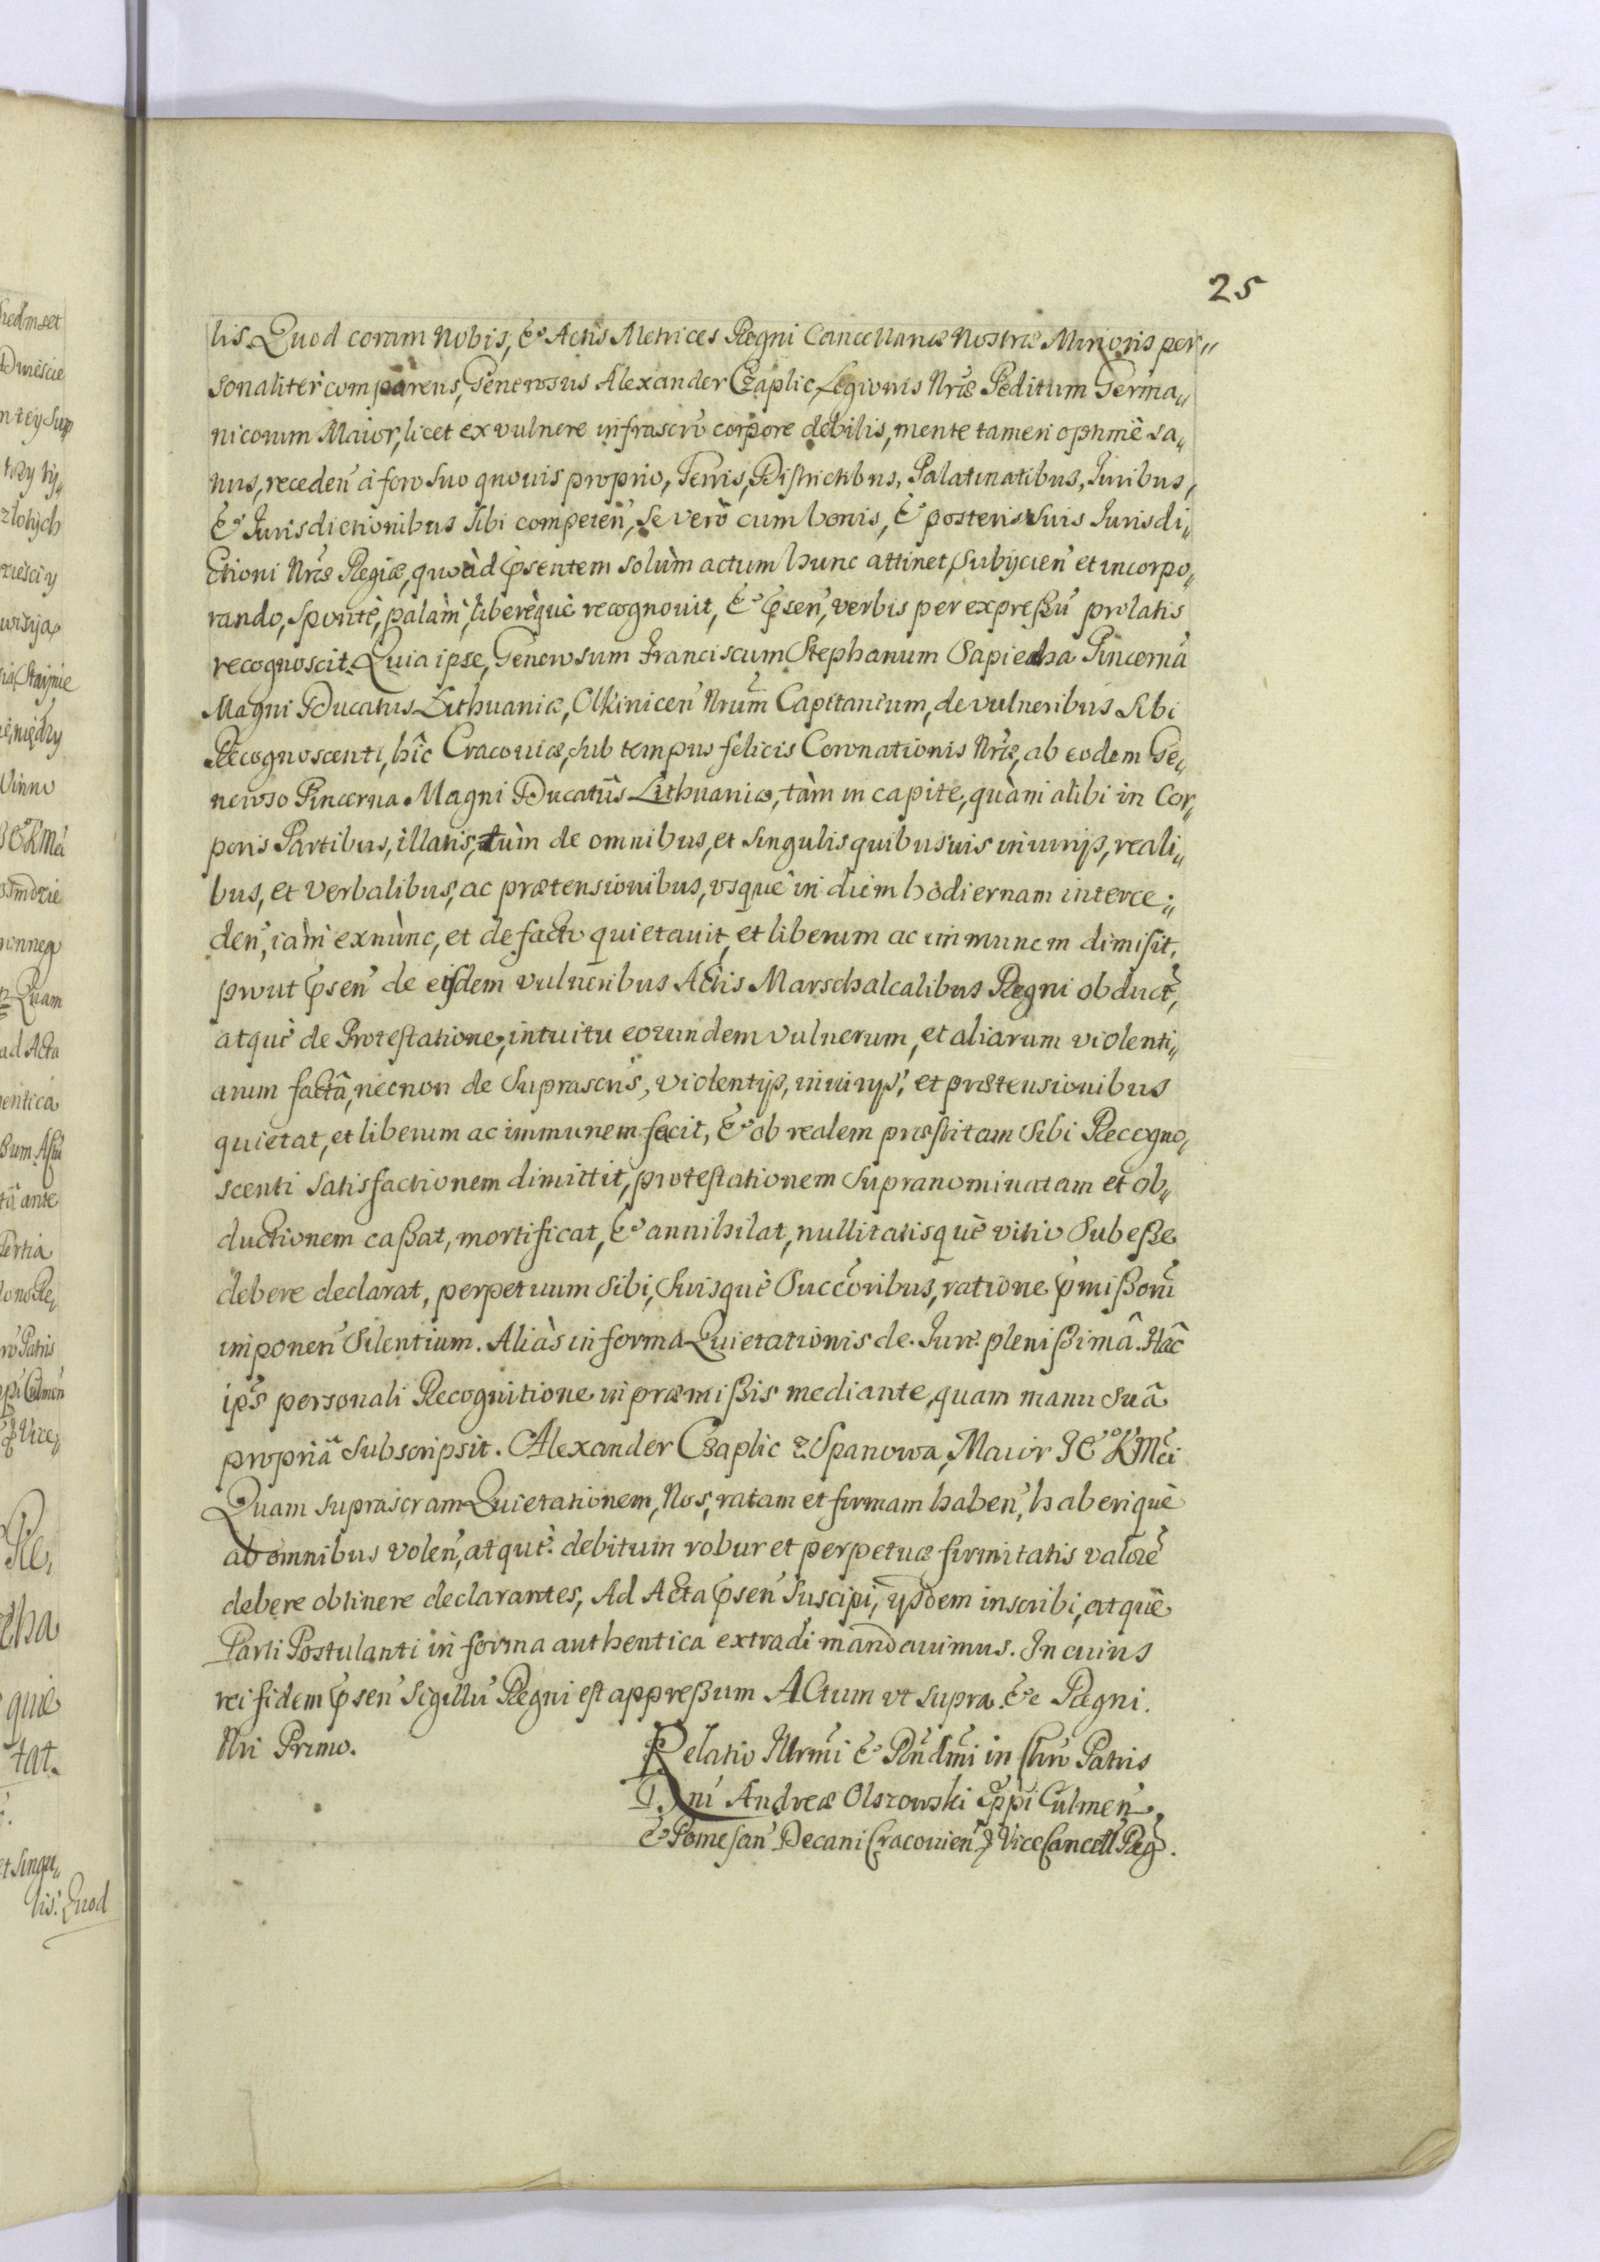 25
lis. Quod coram Nobis, & Actis Metrices Regni Cancellariæ Nostræ Minoris per„
sonaliter comparens, Generosus Alexander Czaplic, Legionis Nræ Peditum Germa„
nicorum Maior, licet ex vulnere infrascro corpore debilis, mente tamen optimè sa„
nus, receden à foro suo quovis proprio, Terris, Districtibus, Palatinatibus, Iuribus,
& Iurisdictionibus sibi competen, se verò cum bonis, & posteris suis Iurisdi„
ctioni Nræ Regiæ, quoàd psentem solùm actum hunc attinet, subijcien et incorpo„
rando, spontè, palàm, liberèquè recognovit, & psen, verbis per expreßũ prolatis
recognoscit. Quia ipse, Generosum Franciscum Stephanum Sapieha Pincernã
Magni Ducatus Lithuaniæ, Olkinicen Nrum Capitaneum, de vulneribus sibi
Recognoscenti, hîc Cracoviæ, sub tempus felicis Coronationis Nræ, ab eodem Ge„
neroso Pincerna Magni Ducatûs Lithuaniæ, tàm in capite, quàm alibi in Cor„
poris Partibus, illatis, tùm de omnibus, et singulis quibusuis iniurijs, reali„
bus, et verbalibus, ac prætensionibus, vsquè in diem hodiernam interce„
den, iàm exnùnc, et de facto quietauit, et liberum ac immunem dimisit,
prout psen de eisdem vulneribus Actis Marschalcalibus Regni obduct,
atquè de Protestatione, intuitu eorundem vulnerum, et aliarum violenti„
arum factâ, necnon de suprascris, violentijs, iniurijs, et prætensionibus
quietat, et liberum ac immunem facit, & ob realem præstitam sibi Recogno„
scenti satisfactionem dimittit, protestationem supranominatam et ob„
ductionem caßat, mortificat, & annihilat, nullitatisquè vitio subeße
debere declarat, perpetuum sibi, suisquè Succoribus, ratione pmißorũ
imponen silentium. Aliàs in forma Quietationis de Iure plenißimâ. Hâc
ips personali Recognitione in præmißis mediante, quam manu suâ
propriâ subscripsit. Alexander Czaplic z Spanowa, Maior JE°KMci
Quam suprascram Quietationem, Nos, ratam et firmam haben, haberiquè
ab omnibus volen, atquè debitum robur et perpetuæ firmitatis valorẽ
debere obtinere declarantes, Ad Acta psen suscipi, ijsdem inscribi, atquè
Parti Postulanti in forma authentica extradi mandauimus. In cuius
rei fidem psen Sigillũ Regni est appreßum Actum vt supra &c Regni.
Nri Primo.
Relatio Illrmi & Rndmi in Chro Patris
Dni Andreæ Olszowski Eppi Culmen
& Pomesan Decani Cracovien, ViceCancell Reg.